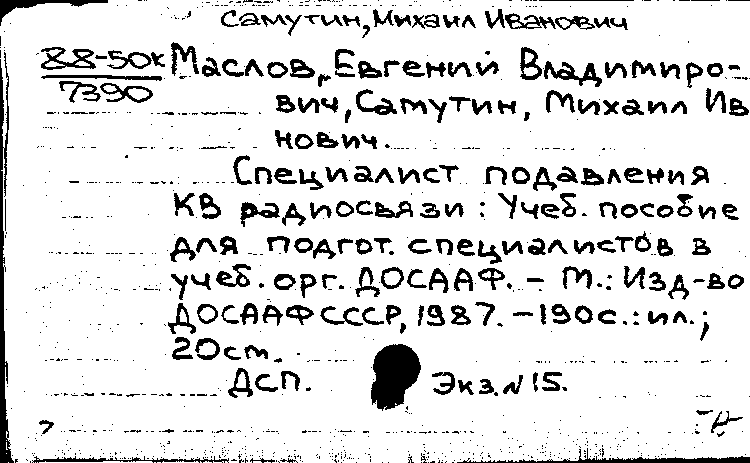 Самутин, Михаил Иванович
88-50к Маслов, Евгений Владимиро-
7390
вич, Самутин, Михаил Ив
нович.
Специалист подавления
КВ радиосвязи : Учеб. пособие
для подгот. специалистов в
учеб. орг. ДОСААФ. - М.: Изд-во
ДОСААФ СССР, 1987. - 190 с.: ил.;
20 ст.
ДСП. Экз. N 15.